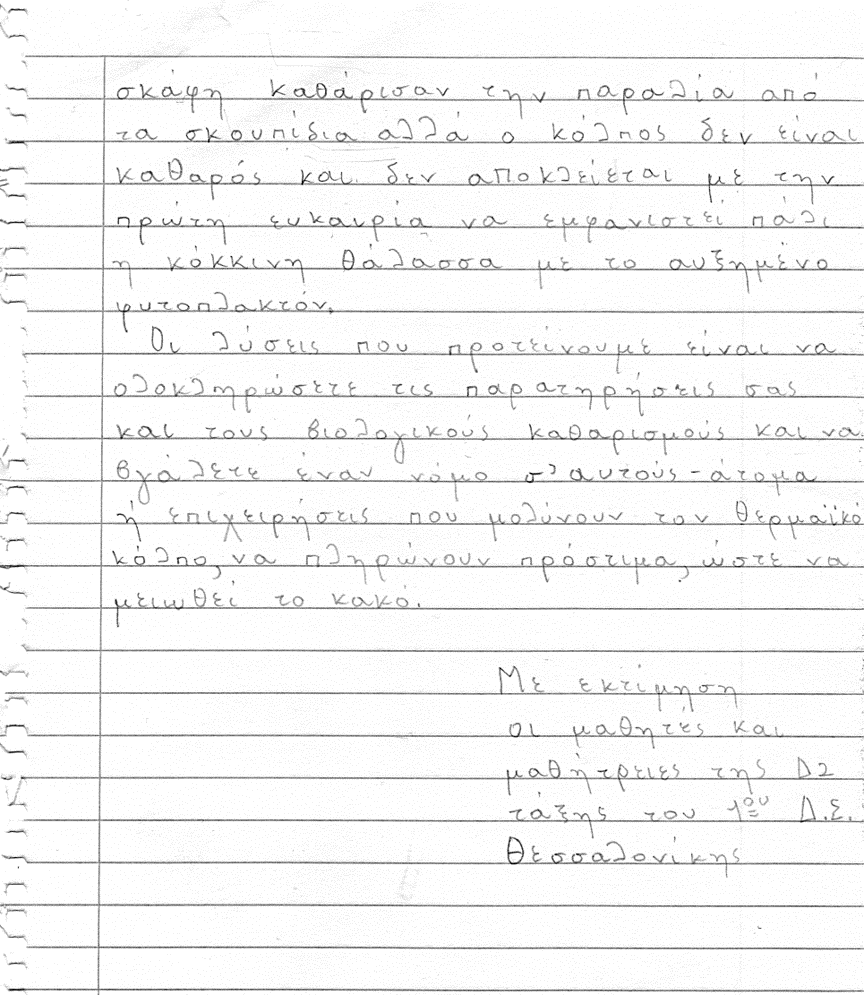 σκάφη καθάρισαν την παραλία από
τα σκουπίδια αλλά ο κόλπος δεν είναι
καθαρός και δεν αποκλείεται με την
πρώτη ευκαιρία να εμφανιστεί πάλι
η κόκκινη θάλασσα με το αυξημένο
φυτοπλακτόν.
Οι λύσεις που προτείνουμε είναι να
ολοκληρώσετε τις παρατηρήσεις σας
και τους βιολογικούς καθαρισμούς και να
βγάλετε έναν νόμο σ' αυτούς-άτομα
ή επιχειρήσεις που μολύνουν τον Θερμαϊκό
κόλπο, να πληρώνουν πρόστιμα, ώστε να
μειωθεί το κακό.
Με εκτίμηση
οι μαθητές και
μαθήτρειες της Δ2
τάξης του 1ου Δ.Σ.
Θεσσαλονίκης